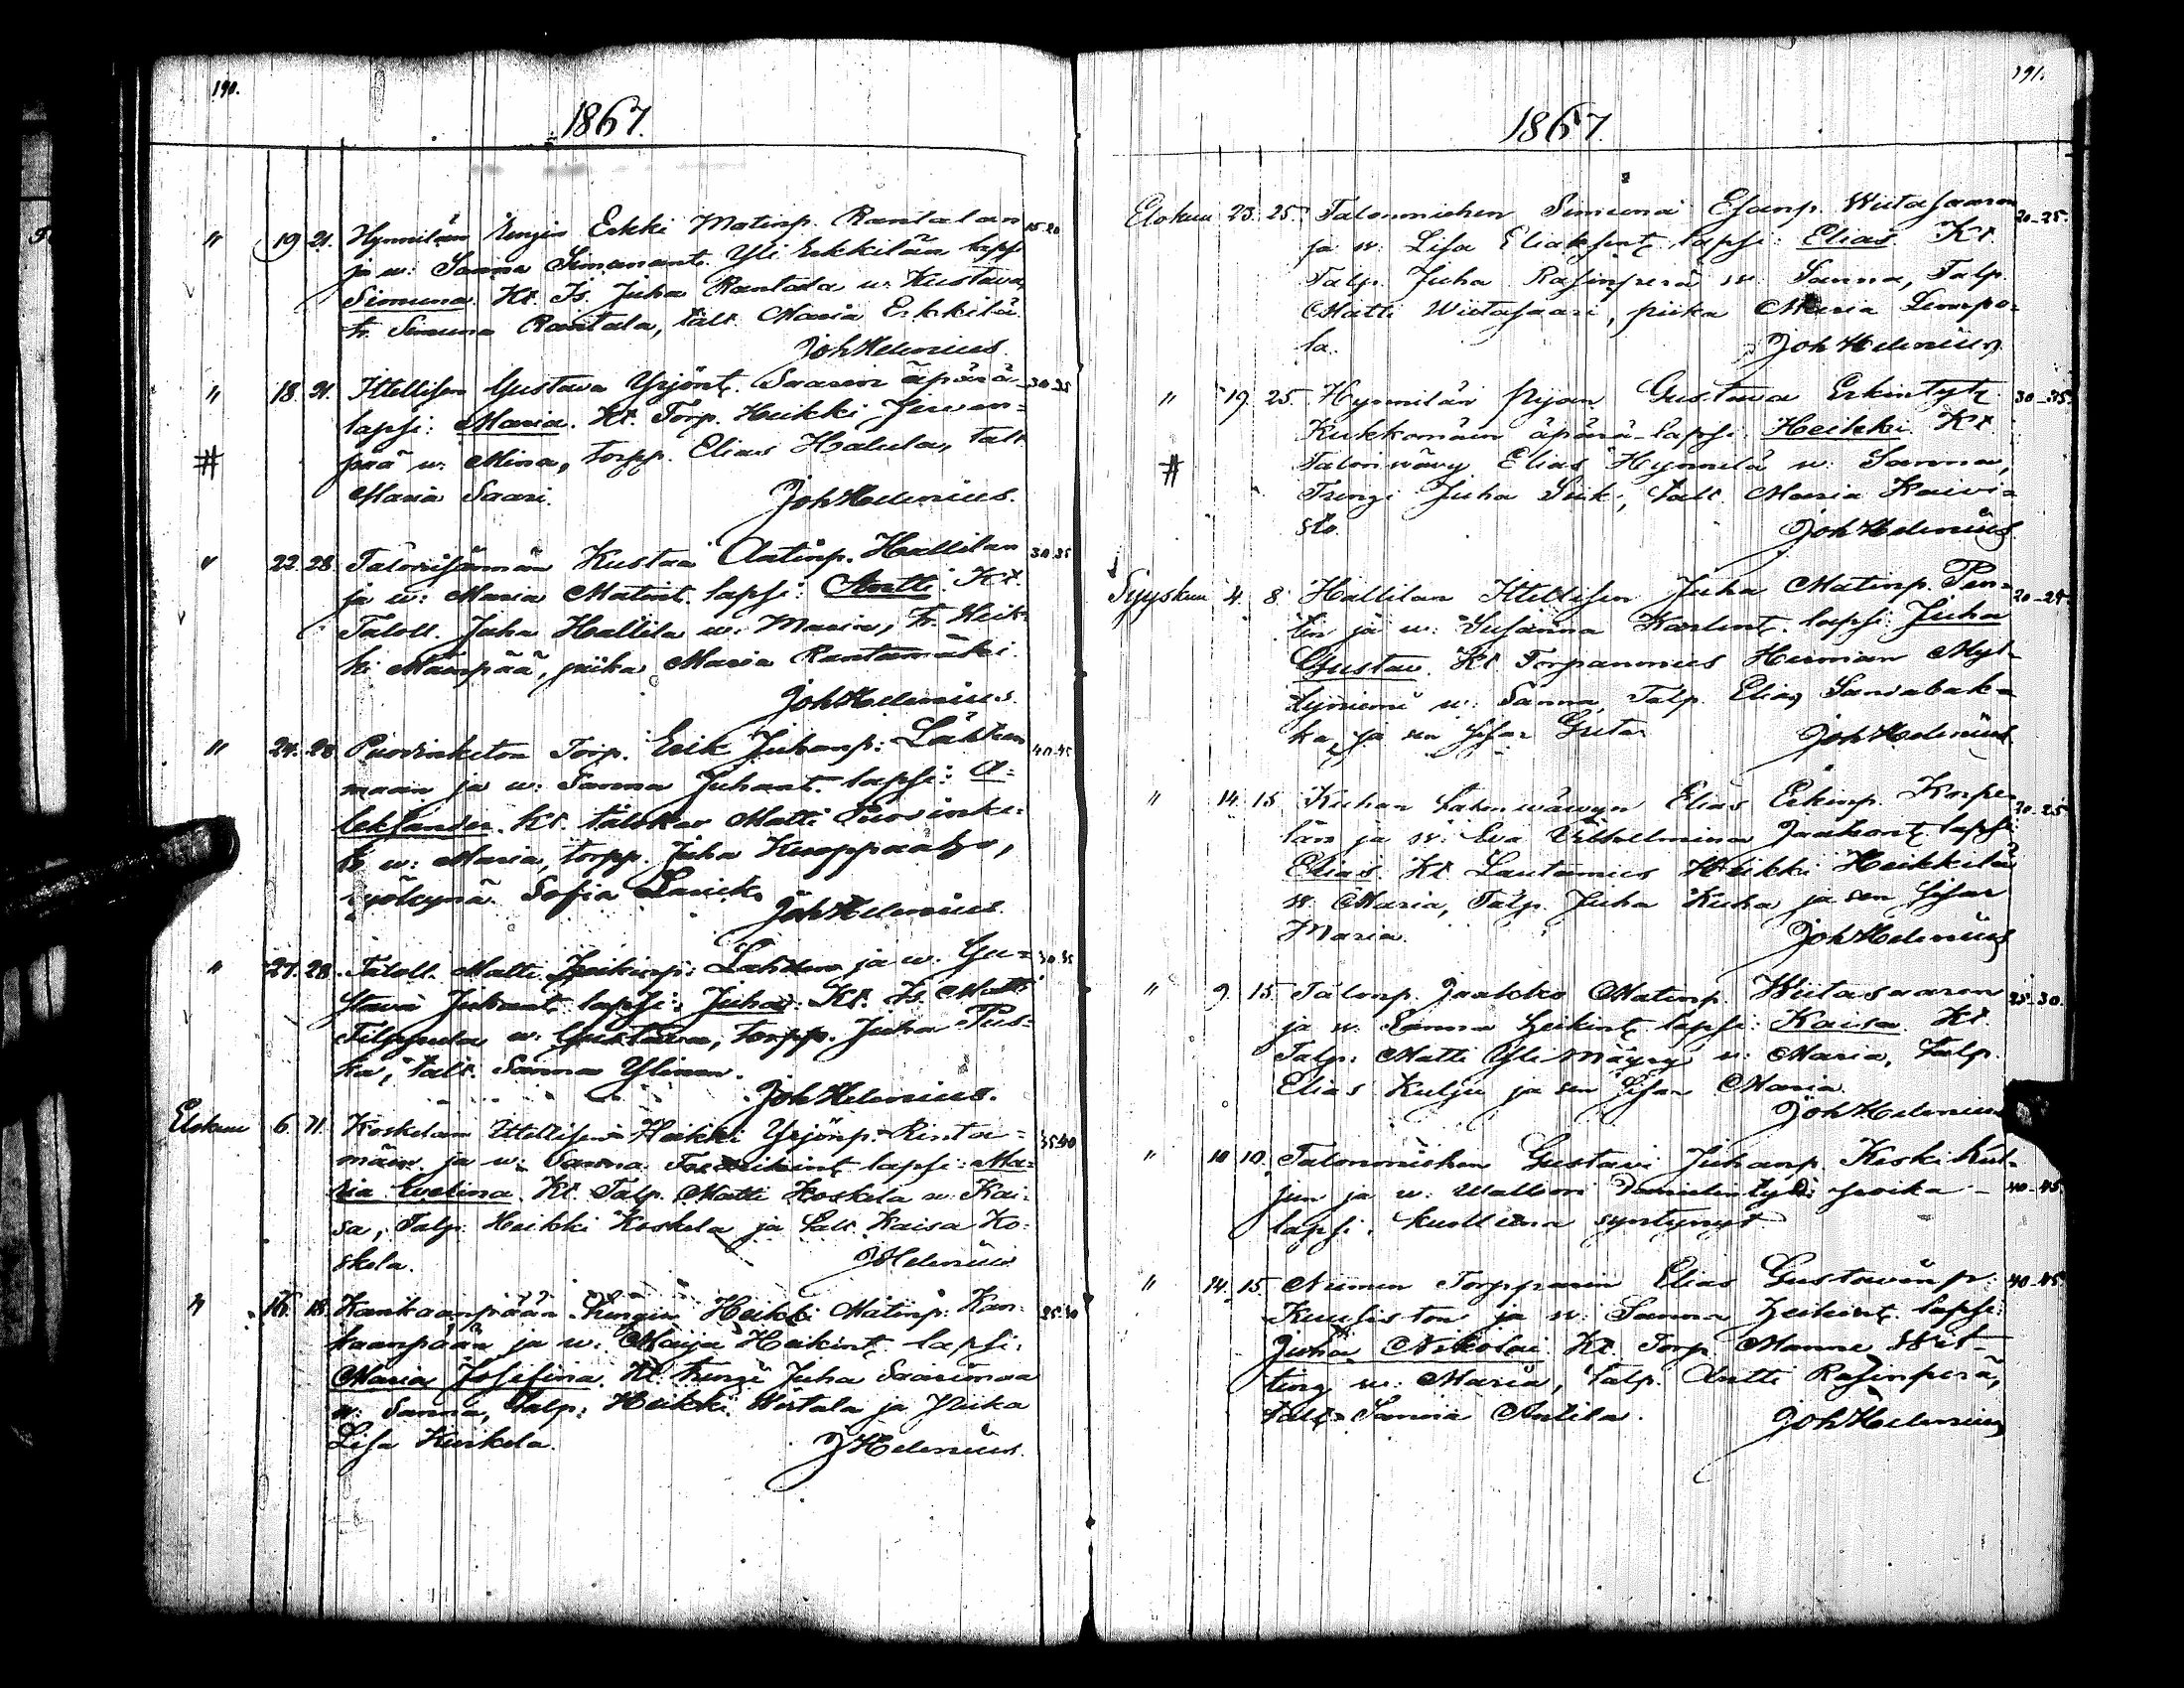 190.
1867.
" 19 21. Hynnilän Rengin Erkki Matinp. Rantalan 15-20
ja w: Sanna Simonant. Yli Erkkilän laps
Simuna. Kt. Is. Juha Rantala w: Kustava,
tr. Simuna Rantala, talt. Maria Erkkilä.
Joh Helenius.
" 18. 21. Ittellisen Gustava Yrjönt. Saaren äpärä- 30-35
lapsi: Maria. Kt. Torp. Heikki
# pää w: Mina, torpp. Elias Halula, talt.
Maria Saari. Joh Helenius.
" 22. 28. Talonisännän Kustaa Antinp. Hallilan 30-35
ja w: Maria Matint. lapsi: Antti. Kt.
Taloll. Juha Hallila w: Maria, tr. Heik-
ki Mäenpää, piika Maria Rantamäki.
Joh Helenius.
" 24. 28 Torp. Erik Juhanp: Lähteen 40-45
maan ja w: Sanna Juhant. lapsi: A-
leksander. Kt. Matti
w: Maria, torpp. Juha
Sofia
Joh Helenius.
" 27. 28. Taloll. Matti Heikinp: Lahden ja w: Gu- 30-35
stava Juhant. lapsi: Juha. Kt. Is. Matti
w: Gustava, torpp. Juha Pus-
ka, talt. Sanna Ylinen.
Joh Helenius.
Elokuu 6. 11. Koskelan Ittellisen Heikki Yrjönp: Rinta- 35-40
mäen ja w: Sanna Fredrikint. lapsi: Ma-
ria Evelina. Kt. Talp. Matti Koskela w: Kai-
sa, Talp: Heikki Koskela ja talt. Kaisa Ko-
skela. J Helenius
" 16. 18. Kankaanpään Rengin Heikki Matinp: Kan- 25-30
kaanpään ja w: Maija Heikint. lapsi:
Maria Josefina. Kt. Rengi Juha Saarimaa
w: Sanna, Talp: Heikki Wirtala ja Piika
Lisa Kurkela. J Helenius.
191.
1867.
Elokuu 23. 25. Talonmiehen Simuna Esanp. Wiitasaaren 20-25.
ja w: Lisa Eliaksent. lapsi: Elias. Kt.
Talp. Juha Rasinperä w: Sanna, Talp.
Matti Wiitasaari, piika Maria Lempo-
la. Joh Helenius
" 19. 25. Hynnilän piijan Gustava Erkintyt. 30-35.
Kukkomäen äpärä-lapsi. Heikki. Kt.
# Talonwävy Elias Hynnilä w: Sanna,
Trengi Juha Suk; talt. Maria Koivi-
sto. Joh Helenius
Syyskuu 4. 8 Hallilan Ittellisen Juha Matinp. Pen- 20-25.
tin ja w: Susanna Karlent. lapsi: Juha
Gustav. Kt. Torpanmies Herman Myl-
lyniemi w: Sanna, Talp. Elias
ka, ja sen sisar Greta. Joh Helenius
" 14. 15. Kuhan talon wäwyn Elias Erkinp. Korpe- 20-25
län ja w: Eva Vilhelmina Jaakont. lapsi:
Elias. Kt. Lautamies Heikki Heikkilä
w: Maria, Talp. Juha Kuha ja sen sisar
Maria. Joh Helenius
" 9. 15. Talonp. Jaakko Matinp. Wiitasaaren 25-30.
ja w: Sanna Heikint. lapsi: Kaisa. Kt.
Talp: Matti Yli Mäyry w: Maria, Talp.
Elias Kulju ja sen sisar Maria.
Joh Helenius
" 10 10. Talonmiehen Gustavi Juhanp. Keski Kul-
jun ja w: Walbori Danielintyt. poika- 40-45.
lapsi. kuollena syntynyt
" 14. 15. Niemen Torpparin Elias Gustavinp: 40-45
Kuuliston ja w: Sanna Heikint. lapsi:
Juha Nikolai. Kt. Torp. Manne Wit-
ting w: Maria, Talp. Antti Rasinperä,
talt. Sanna Antila. Joh Helenius